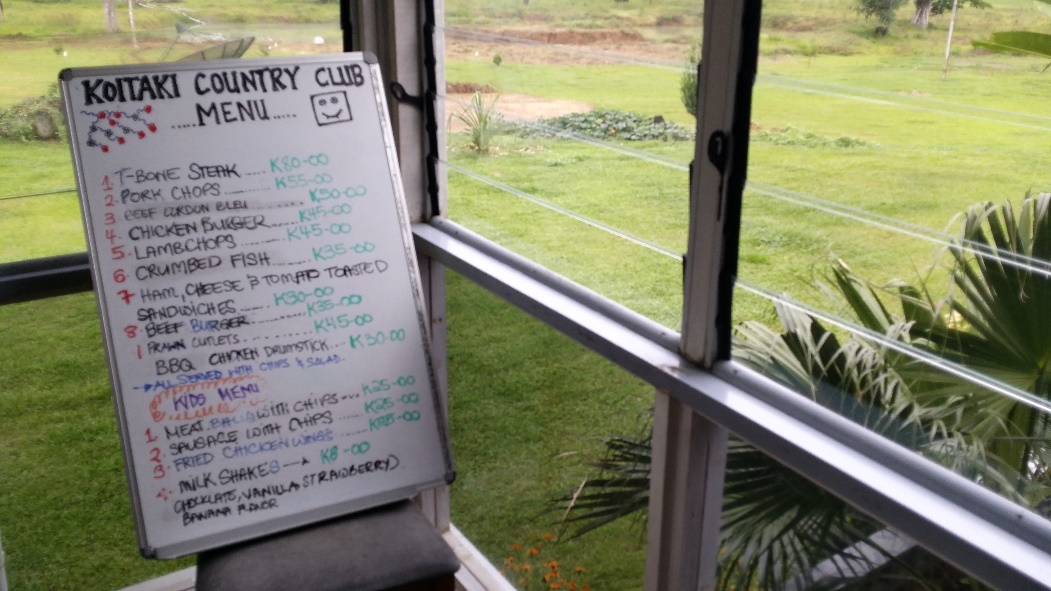 KOITAKI COUNTRY CLUB
.....MENU.....
1. T-BONE STEAK .... K80-00
2. PORK CHOPS ........ K55-00
3 BEEF CORDON BLEU ........ K50-00
4. CHICKEN BURGER ....... K45-00
5. LAMBCHOPS .......... K45-00
6. CRUMBED FISH ........ K35-00
7 HAM, CHEESE, & TOMATO TOASTED
SANDWICHES ...... K30-00
8. BEEF BURGER ....... K35-00
1 PRAWN CUTLETS ......... K45-00
BBQ CHICKEN DRUMSTICK... K30-00
ALL SERVED WITH CHIPS & SALAD.
KIDS MENU
1. MEAT BALLS WITH CHIPS.... K25-00
2. SAUSAGE WITH CHIPS ...... K25-00
3. FRIED CHICKEN WINGS ...... K25-00
4. MILK SHAKES → K8-00
CHOCLATE, VANILLA, STRAWBERRY)
BANANA FLAVOR